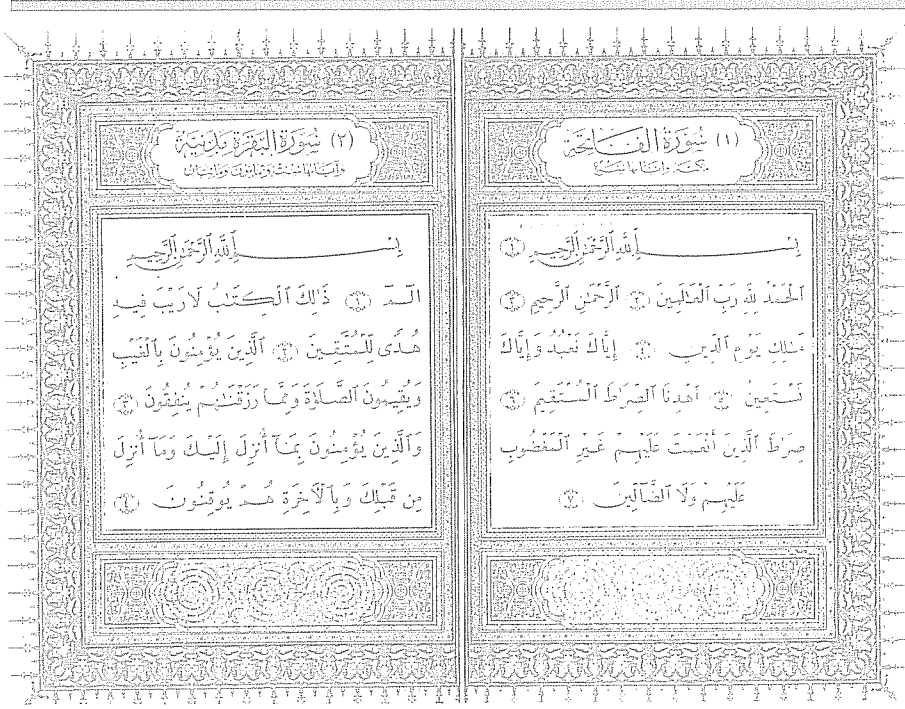 (١) سُورَةُ الفَاتِحَةِ
مكيّة وآياتها سَبع
بِسْمِ ٱللَّهِ ٱلرَّحْمَٰنِ ٱلرَّحِيمِ ١
ٱلْحَمْدُ لِلَّهِ رَبِّ ٱلْعَـٰلَمِينَ ٢ ٱلرَّحْمَـٰنِ ٱلرَّحِيمِ ٣
مَـٰلِكِ يَوْمِ ٱلدِّينِ ٤ إِيَّاكَ نَعْبُدُ وَإِيَّاكَ
نَسْتَعِينُ ٥ ٱهْدِنَا ٱلصِّرَٰطَ ٱلْمُسْتَقِيمَ ٦
صِرَٰطَ ٱلَّذِينَ أَنْعَمْتَ عَلَيْهِمْ غَيْرِ ٱلْمَغْضُوبِ
عَلَيْهِمْ وَلَا ٱلضَّآلِّينَ ٧
(٢) سُورَةُ البَقَرَةِ مَدَنِيَّة
وآياتها سِتّ وثمانون ومائتان
بِسْمِ ٱللَّهِ ٱلرَّحْمَٰنِ ٱلرَّحِيمِ
الٓـمٓ ١ ذَٰلِكَ ٱلْكِتَـٰبُ لَا رَيْبَ فِيهِ
هُدًى لِّلْمُتَّقِينَ ٢ ٱلَّذِينَ يُؤْمِنُونَ بِٱلْغَيْبِ
وَيُقِيمُونَ ٱلصَّلَوٰةَ وَمِمَّا رَزَقْنَـٰهُمْ يُنفِقُونَ ٣
وَٱلَّذِينَ يُؤْمِنُونَ بِمَآ أُنزِلَ إِلَيْكَ وَمَآ أُنزِلَ
مِن قَبْلِكَ وَبِٱلْأَخِرَةِ هُمْ يُوقِنُونَ ٤